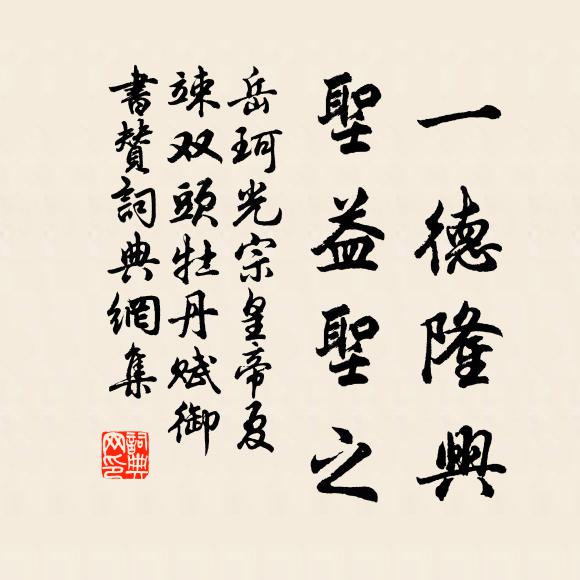 一德隆興
聖益聖之
岳珂光宗皇帝夏
竦双頭牡丹赋御
書贊詞典網集
詞典
网印